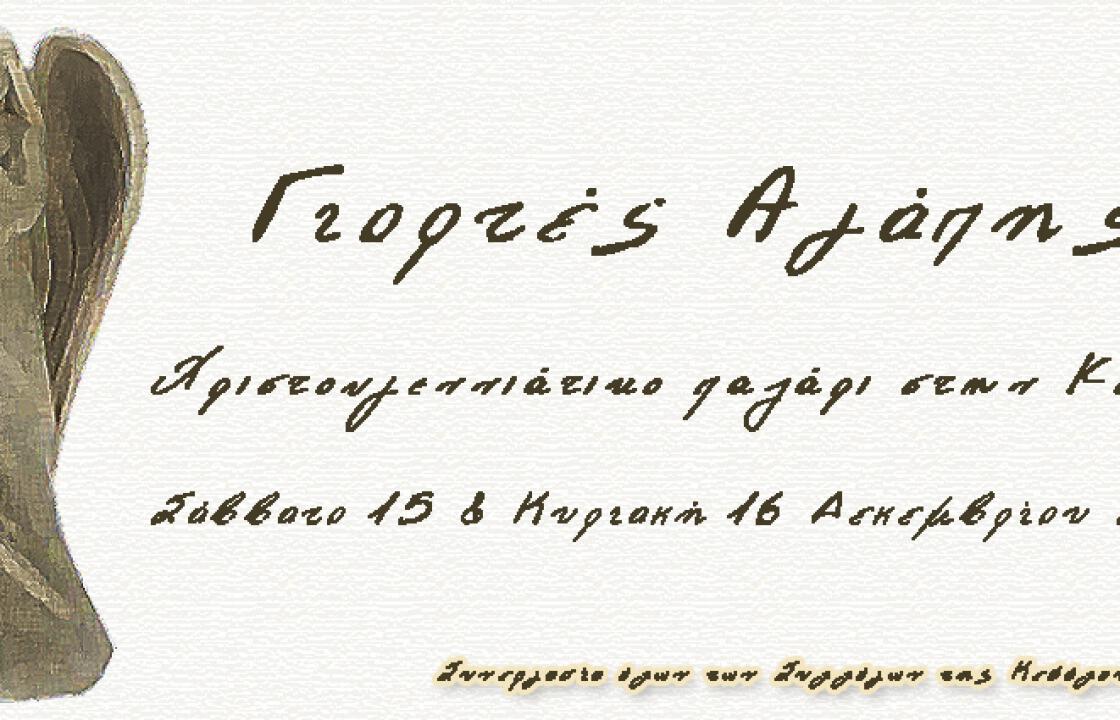 Γιορτές Αγάπης
Χριστουγεννιάτικο παζάρι στην
Σάββατο 15 & Κυριακή 16 Δεκεμβρίου
Συνεργασία όλων των Συλλόγων της